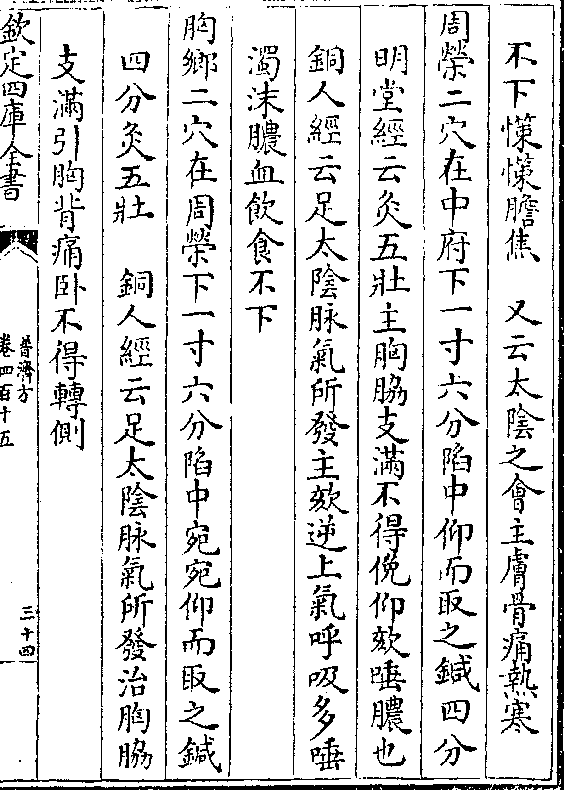 不下懞懞膽焦　又云太陰之會主膚骨痛熱寒
周榮二穴在中府下一寸六分陷中仰而取之鍼四分
明堂經云灸五壯主胸脇支滿不得俛仰欬唾膿也
銅人經云足太陰脉氣所發主欬逆上氣呼吸多唾
濁沫膿血飲食不下
胸鄉二穴在周榮下一寸六分陷中宛宛仰而取之鍼
四分灸五壯　銅人經云足太陰脉氣所發治胸脇
支滿引胸背痛卧不得轉側
欽定四庫全書
普濟方
卷四百十五
三十四